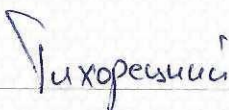 Тихорецкий